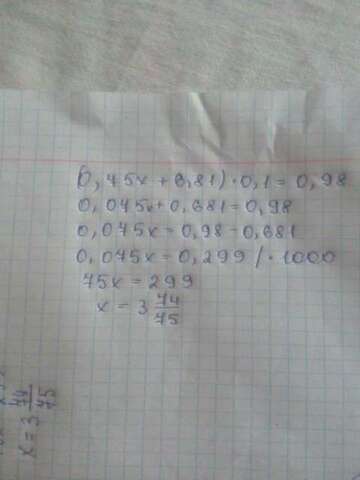 (0,75x + 6,81) · 0,1 = 0,98
0,075x + 0,681 = 0,98
0,075x = 0,98 - 0,681
0,075x = 0,299 / · 1000
75x = 299
x = 3 74/75
x = 3 74/75